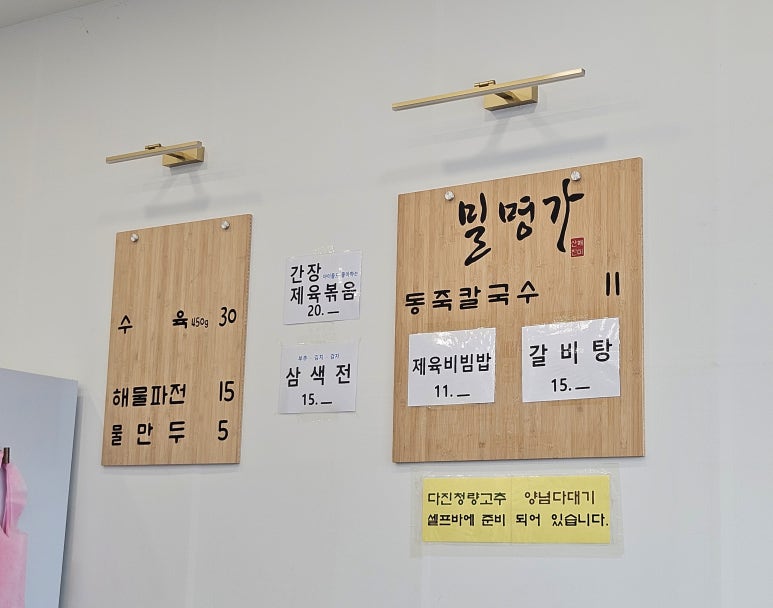 수 육 450g 30
해물파전 15
물만두 5
간장
제육볶음
20.__
부추 · 김치 · 감자
삼색전
15.__
밀명가
산해
진미
동죽칼국수 11
제육비빔밥
11.__
갈비탕
15.__
다진청량고추 양념다대기
셀프바에 준비 되어 있습니다.